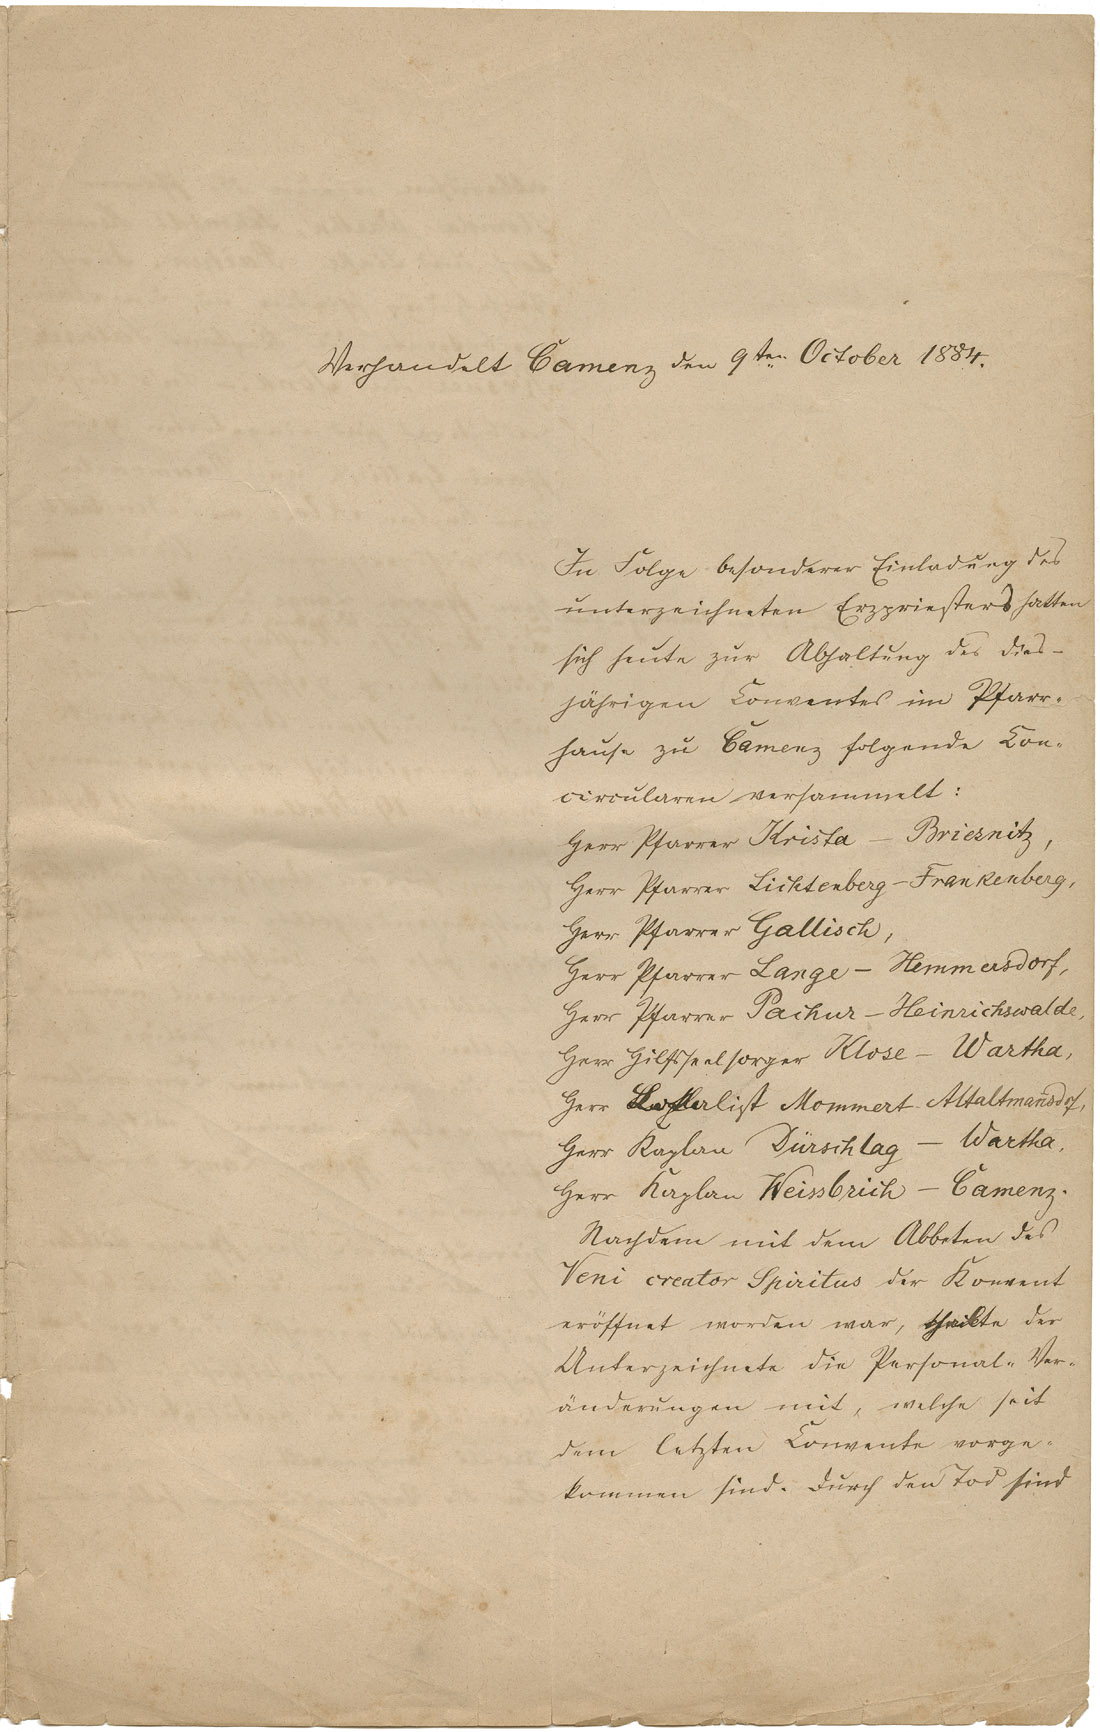 Verhandelt Camenz den 9ten October 1884.
In Folge besonderer Einladung des
unterzeichneten Erzpriesters hatten
sich heute zur Abhaltung des dies-
jährigen Conventes im Pfarr-
hause zu Camenz folgende Con-
circularen versammelt:
Herr Pfarrer Krista – Briesnitz,
Herr Pfarrer Lichtenberg – Frankenberg,
Herr Pfarrer Gallisch,
Herr Pfarrer Lange – Hemmersdorf,
Herr Pfarrer Pachur – Heinrichswalde,
Herr Hilfsseelsorger Klose – Wartha,
Herr Mommert Altaltmansdorf,
Herr Kaplan Dürschlag – Wartha,
Herr Kaplan Weissbrich – Camenz.
Nachdem mit dem Abbeten des
Veni creator Spiritus der Konvent
eröffnet worden war, theilte der
Unterzeichnete die Personal-Ver-
änderungen mit, welche seit
dem letzten Convente vorge-
kommen sind. Durch den Tod sind